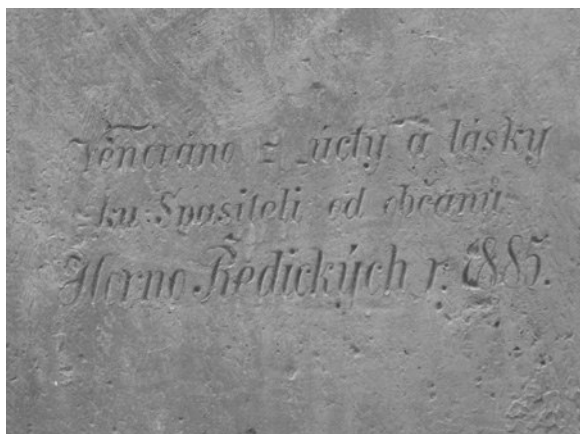 Věnováno z úcty a lásky
ku Spasiteli od občanů
Horno Ředických r. 1885.